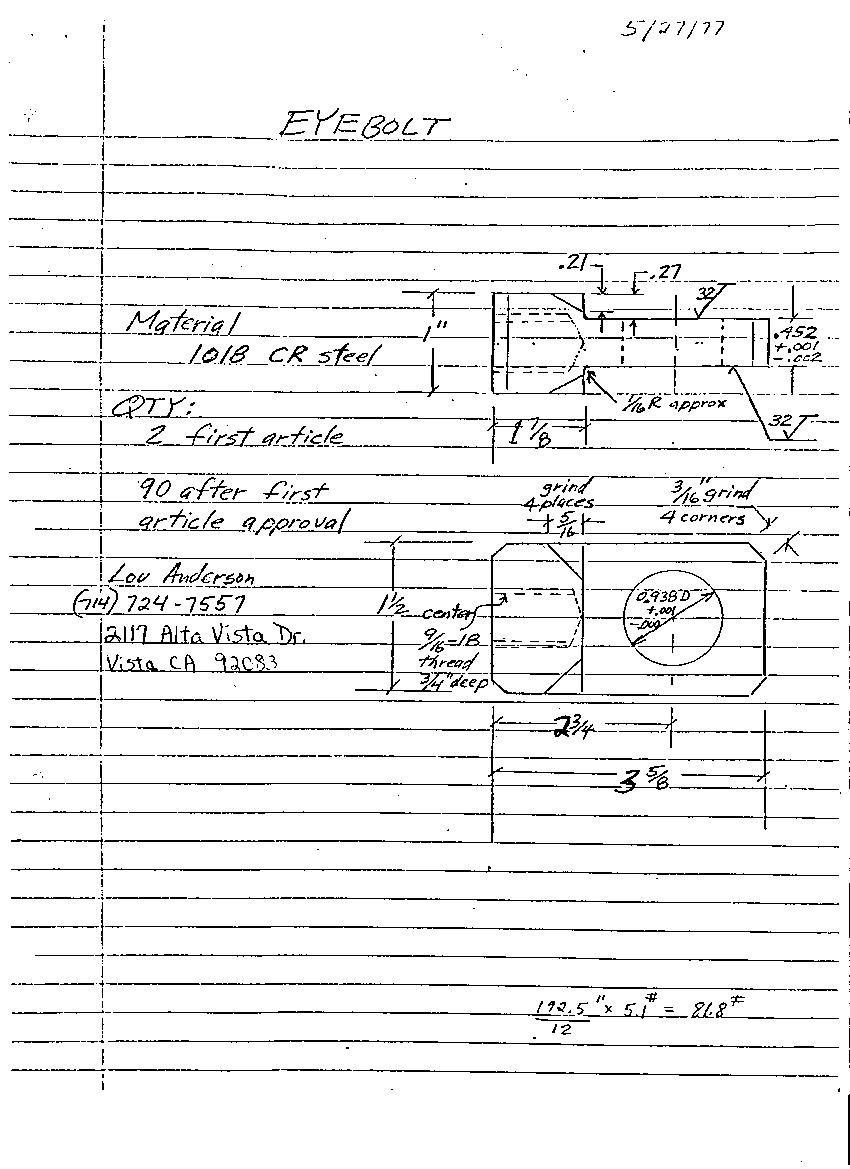 5/27/77
EYEBOLT
.21
.27
32
Material
1"
.452
1018 CR steel
+.001
-.002
1/16 R approx
QTY:
32
2 first article
1 7/8
90 after first
grind
3/16" grind
4 places
article approval
5/16
4 corners
Lou Anderson
(714) 724-7557
1 1/2
center
0.938 D
+.001
2117 Alta Vista Dr.
9/16-18
Vista CA 92083
thread
3/4" deep
2 3/4
3 5/8
192.5" x 5.1# = 81.8#
12